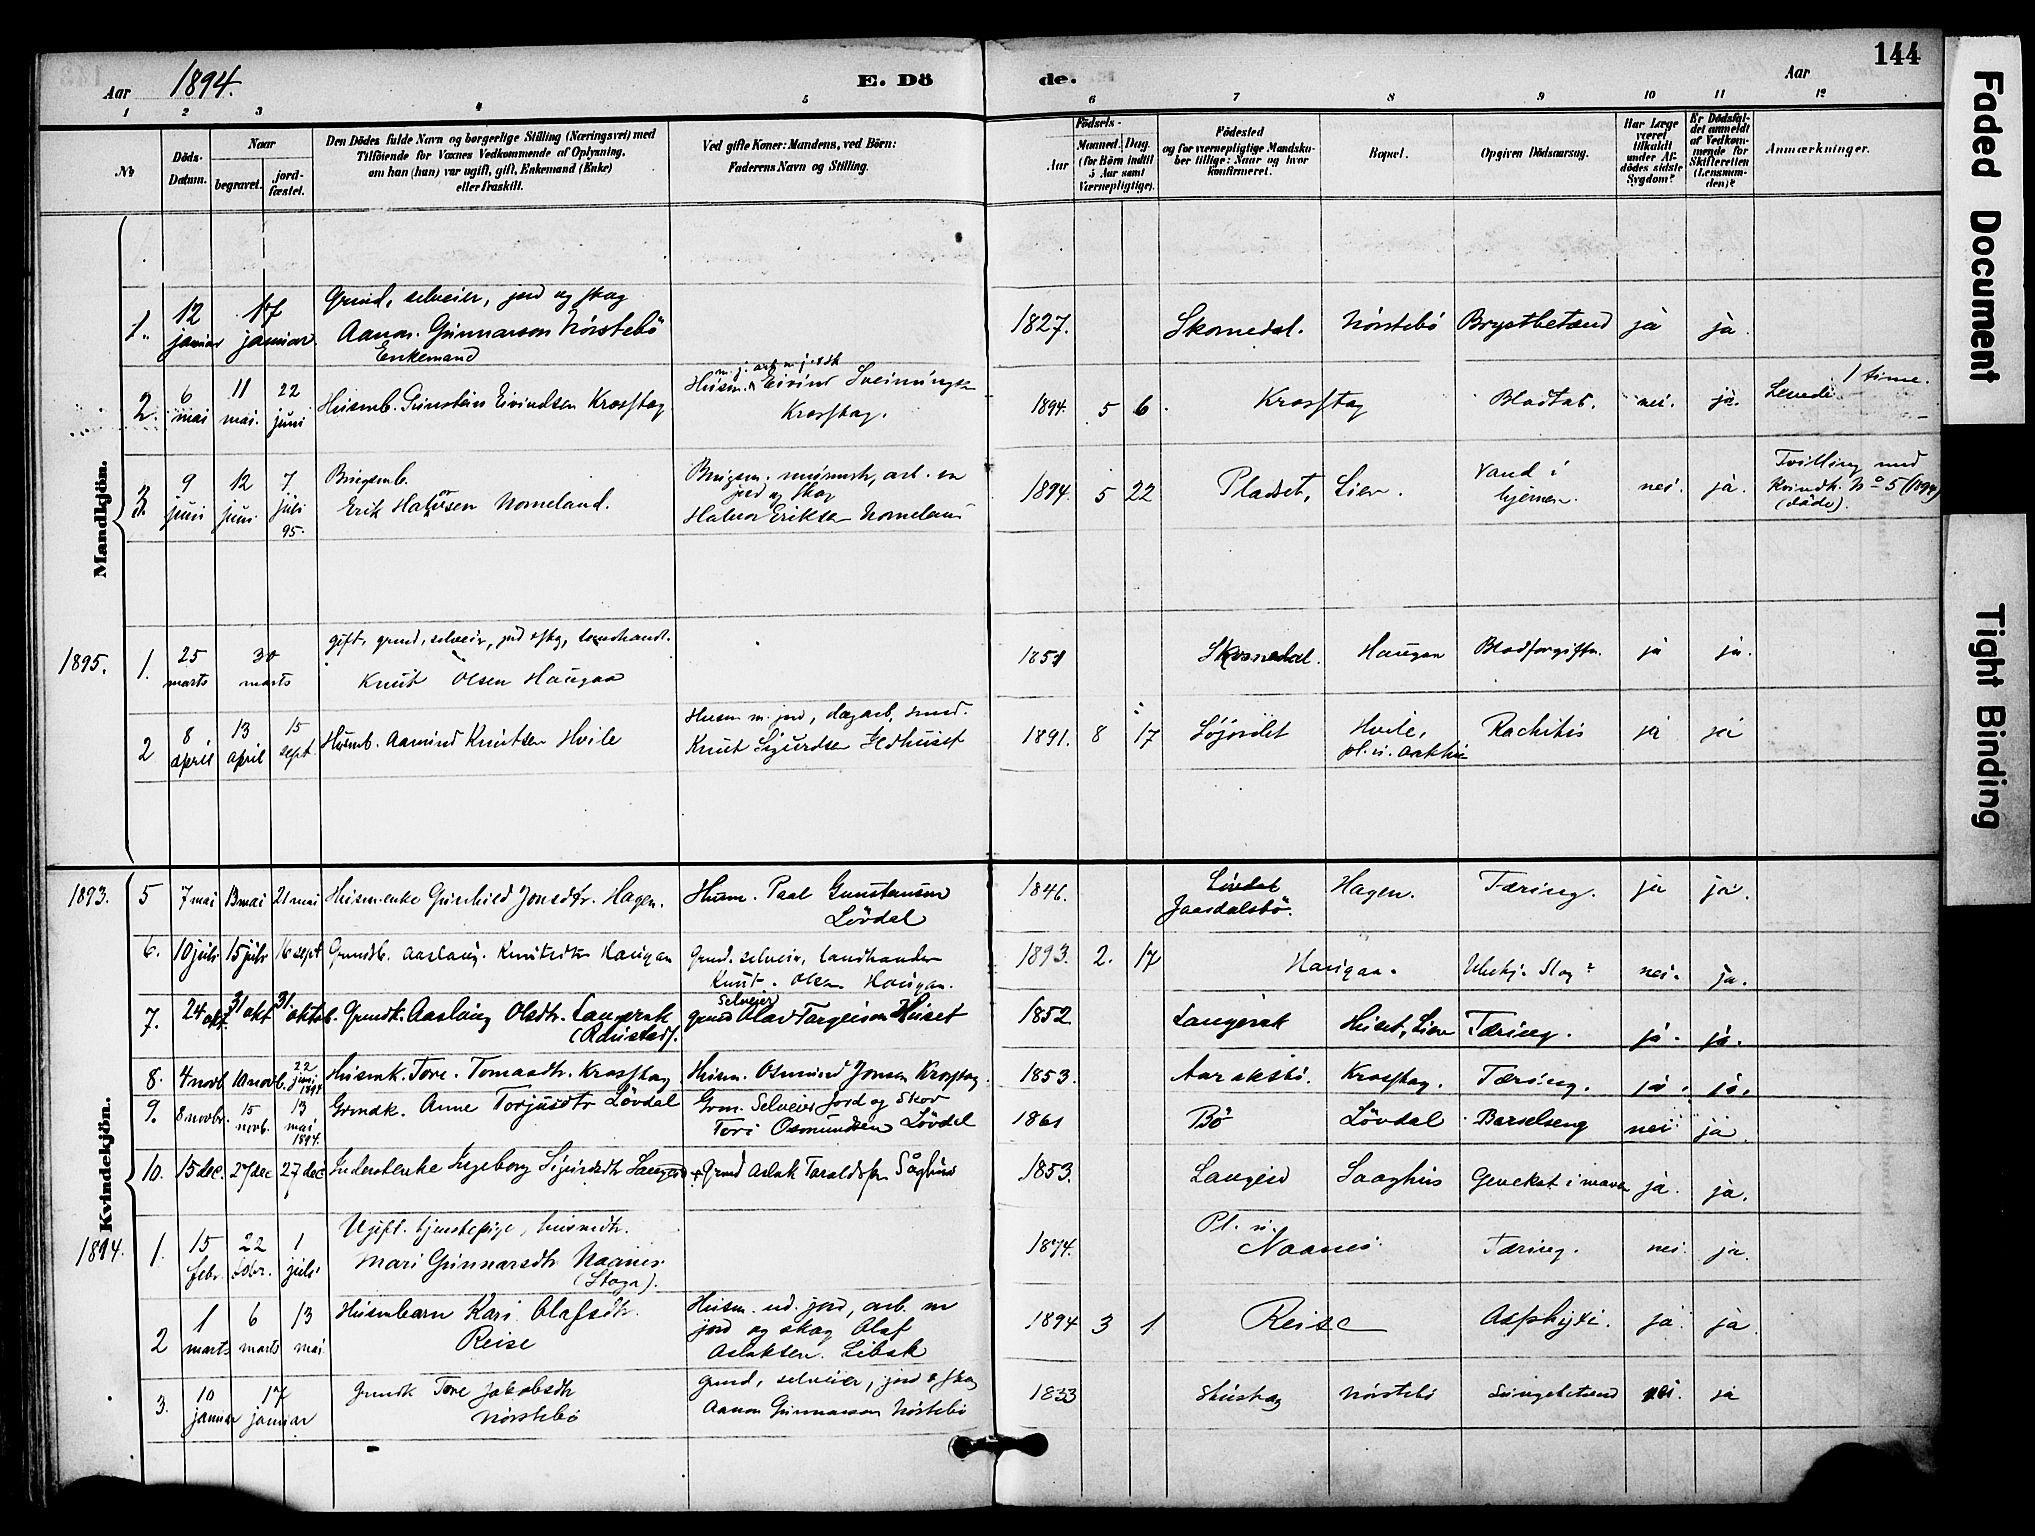 144
Aar 1894.
E. Dö
de.
Aar
1 2 3 4 5 6 7 8 9 10 11 12
№
Döds-Datum.
Naar
begravet.
jord-fæstet.
Den Dödes fulde Navn og borgerlige Stilling (Næringsvei) med
Tilföiende for Voxnes Vedkommende af Oplysning,
om han (hun) var ugift, gift, Enkemand (Enke)
eller fraskilt.
Ved gifte Koner: Mandens, ved Börn:
Faderens Navn og Stilling.
Födsels-
Aar
Maaned. Dag.
(for Börn indtil
5 Aar samt
Værnepligtige).
Födested
og for værnepligtige Mandska-
ber tillige: Naar og hvor
konfirmeret.
Bopæl.
Opgiven Dödsaarsag.
Har Læge
været
tilkaldt
under Af-
dödes sidste
Sygdom?
Er Dödsfal-
det anmeldt
af Vedkom-
mende for
Skifteretten
(Lensman-
den)?
Anmærkninger.
Mandkjön.
1. 12 januar 17 januar.
Grund, selveier, jord og skog
Aanon Gunnarson Nörstebö
Enkemand
1827. Skomedal. Nörstebö Brystbetænd ja ja.
2. 6 mai 11 mai. 22 juni
Husmb. Gunstein Eivindsen Krosstag
Husm. Eivind Sveinungsn
Krosstag.
1894. 5 6. Krosstag Blodtab. nei. ja. Levede 1 time.
3. 9 juni 12 juni 7 juli 95.
Brugsmb.
Erik Halvorsen Nomeland.
jord og skog
Halvor Eriksen Nomeland
1894. 5 22 Pladset, Lien. Vand i hjernen. nei. ja.
Tvilling med
Kvindk. No 5 (1894)
(døde).
1895. 1. 25 marts 30 marts
gift, grund, selveier, jord & skog, landhandl.
Knut Olsen Haugaa
1851 Skomedal. Haugaa Blodforgiftn. ja ja.
2 8 april 13 april 15 sept
Husmb. Aamund Knutsen Hvile
Husm m. jord, dagarb,
Knut Sigurdsen Ildhuset
1891. 8 17 Hvile, Rachitis ja ja
Kvindekjön.
1893. 5 7 mai 13 mai 21 mai
Husm.enke Gunhild Jonsdtr. Hagen.
Husm. Paal Gunstensen
Lövdal
1846. Lövdal Hagen. Tæring. ja ja.
6. 10 juli 15 juli 16 sept
Grundb. Aaslaug. Knutsdtr Haugaa
Grund. selveier, landhandler
Knut. Olsen Haugaa.
1893. 2. 17 Haugaa. nei. ja.
7. 24 okt. 31 okt 31. oktob.
Grundk. Aaslaug Olsdtr. Langerak
(Røustad).
Selveier
grund Olav Torgeirsen Huset
1852 Langerak Huset, Lien Tæring. ja. ja.
8. 4 novb. 10 novb. 22 juni 1894
Husmk. Tore. Tomasdtr. Krosstag
Husm. Osmund Jonsen Krosstag.
1853. Aaraksbö. Krosstag. Tæring. ja. ja.
9. 8 novbr. 15 novb. 13 mai 1894.
Grmdk. Anne Torjusdtr Lövdal
Grm. Selveier Jord og Skov
Tori Osmundsen Lövdal
1861 Bö Lövdal Barselseng nei ja.
10. 15 dec. 27 dec 27 dec
Inderstenke Ingeborg Sigurdsdtr Langeid
+ Grund Aslak Taraldsen Såghus
1853. Langeid Saaghus ja. ja.
1894. 1. 15 febr. 22 febr. 1 juli
Ugift. tjenestepige, husmdtr.
Mari Gunnarsdtr Naanes
(Stoga).
1874. Pl. u. Naanes. Tæring. nei. ja.
2 1 marts 6 marts 13 mai
Husmbarn Kari Olafsdtr.
Reise
Husm. ud. jord, arb. m
jord og skog Olaf
Aslaksen. Libak
1894 3 1 Reise Asfhyxi. ja. ja
3. 10 januar 17 januar
Grundk Tore Jakobsdtr
Nörstebö
Grund, selveier, jord & skog
Aanon Gunnarson Nörstebö
1833 Nörstebö Lungebetænd nei. ja
Faded Document
Tight Binding